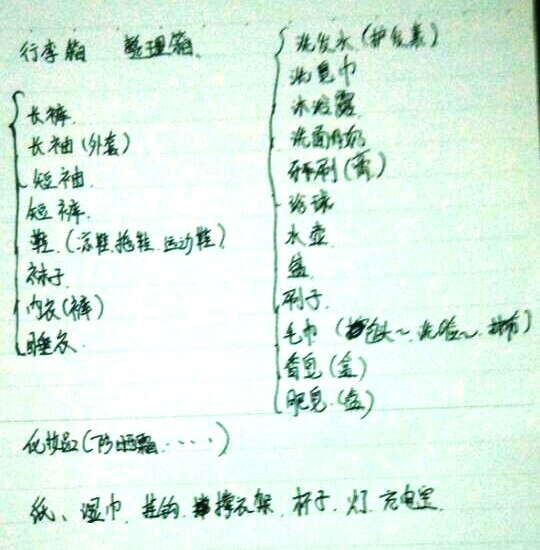 行李箱 整理箱
长裤
长袖(外套)
短袖
短裤
鞋(凉鞋.拖鞋.运动鞋)
袜子
内衣(裤)
睡衣
洗发水(护发素)
洗澡巾
沐浴露
洗面奶
牙刷(膏)
浴球
水壶
盆
刷子
毛巾(包头~.洗脸~.抹布)
香皂(盒)
肥皂(盒)
化妆品(防晒霜.····)
纸、湿巾.挂钩.撑衣架.杯子.灯.充电宝